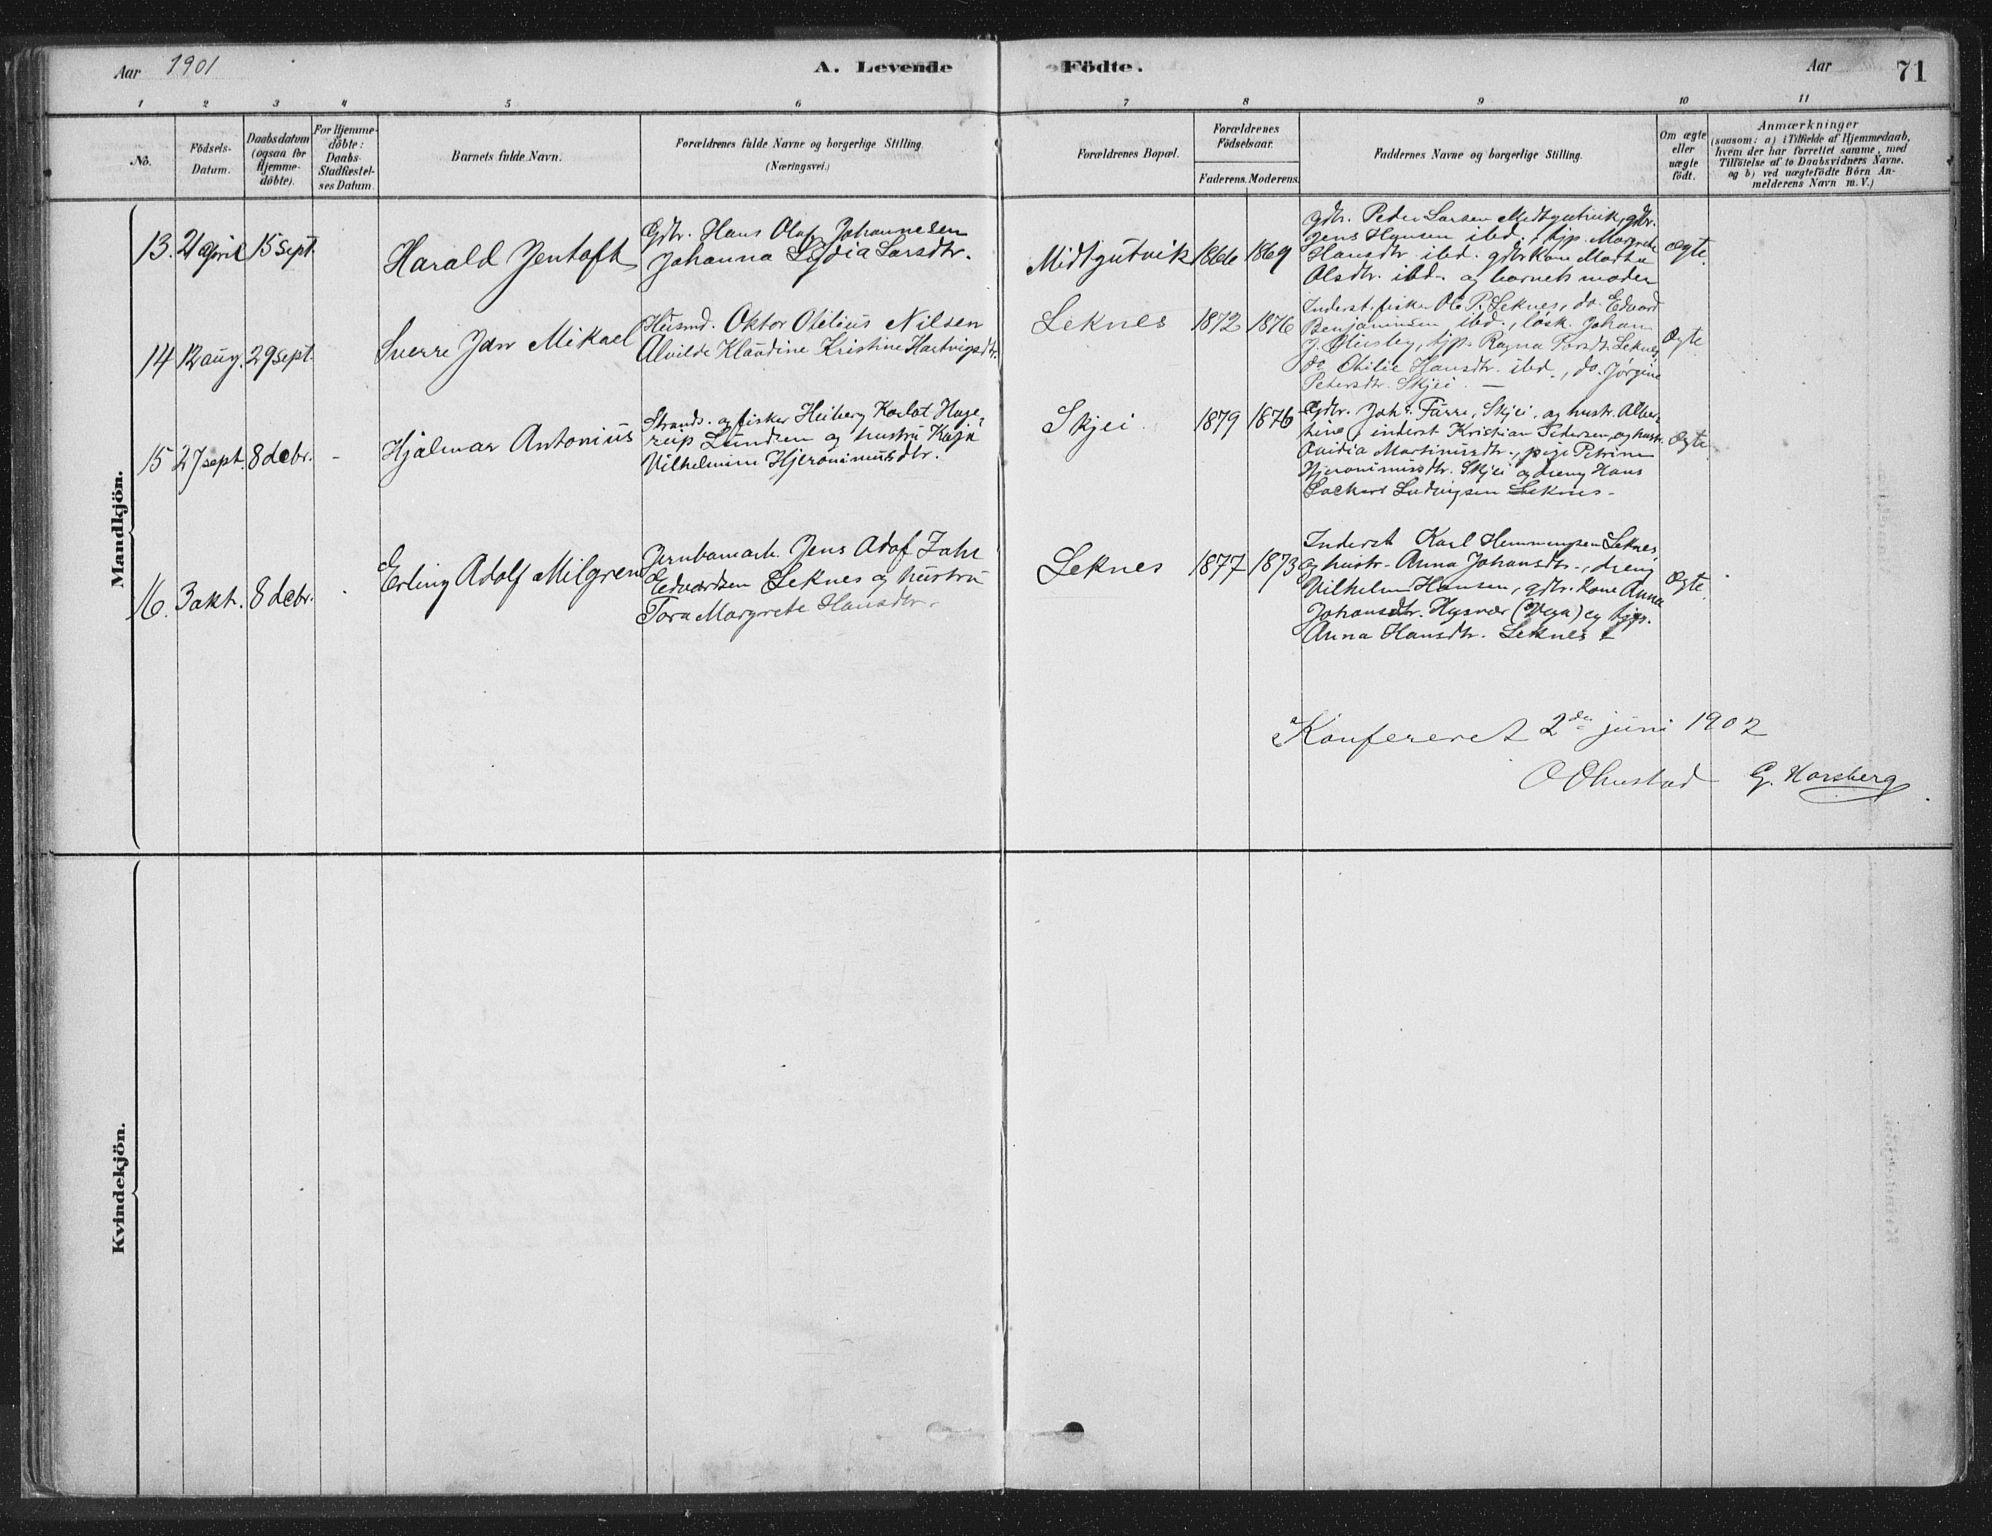 Aar 1901
A. Levende Födte.
Aar 71
1 2 3 4 5 6 7 8 9 10 11
No.
Födsels-
Datum.
Daabsdatum
(ogsaa for
Hjemme-
döbte).
For Hjemme-
döbte:
Daabs-
Stadfæstel-
ses Datum.
Barnets fulde Navn.
Forældrenes fulde Navne og borgerlige Stilling.
(Næringsvei.)
Forældrenes Bopæl.
Forældrenes
Födselsaar.
Faderens. Moderens.
Faddernes Navne og borgerlige Stilling.
Om ægte
eller
uægte
födt.
Anmærkninger
(saasom: a) i Tilfælde af Hjemmedaab,
hvem der har forrettet samme, med
Tilföielse af to Daabsvidners Navne,
og b) ved uægtefödte Börn An-
melderens Navn m. V.)
Mandkjön.
13. 21 April 15 sept.
Harald Zentoft
Gdbr. Hans Olaf Johannesen
Johanna Lydia Larsdtr.
Midtgutvik 1866 1869
gdbr. Peder Larsen Midtgutvik, gdbr.
Jens Hansen ibd., tjp. Margrete
Hansdtr. ibd. gdbrkone Martha
Olsdtr. ibd. og barnets moder
Ægte.
14 12 aug. 29 sept.
Sverre Jan Mikael
Husmd. Oktor Otelius Nilsen
Alvilde Klaudine Kristine Hartvigsdtr.
Leknes 1872 1876
Inderst. fisker Ole P. Leknes, do. Edvard
Benjaminsen ibd., løsk. Johan
J. tjp. Ragna Leknes,
do Otilie Hansdtr. ibd., do. Jørgine
Petersdtr. Skjei. —
Ægte
15 27 sept. 8 decbr. -
Hjalmar Antonius
Strands. og fisker Heiberg Karlot Hage-
rup Lundsen og hustru Kaja
Vilhelmine Hjeronimusdtr.
Skjei. 1879 1876
Gdbr. Johs. Farre, Skjei, og hustr. Alber-
tine, inderst Kristian Pedersen, og hustr.
Ovidia Martinusdtr., pige Petrine
Hjeronimusdtr. Skjei og dreng Hans
Ludvigsen Leknes.
Ægte.
16. 3 okt. 8 decbr. .
Erling Adolf Milgren
Jernbanearb. Jens Adof Zahl
Edvardsen Leknes og hustru
Tora Margrete Hansdtr.
Leknes 1877 1873
Inderst Karl Hemmingsen Leknes,
og hustr. Anna Johansdtr., dreng
Vilhelm Hansen, gdbr. kone Anna
Johansdtr. Hysvær (Vega) og tjp.
Anna Hansdtr. Leknes
Ægte.
Konfereret 2den juni 1902
G. Horsberg
Kvindekjön.